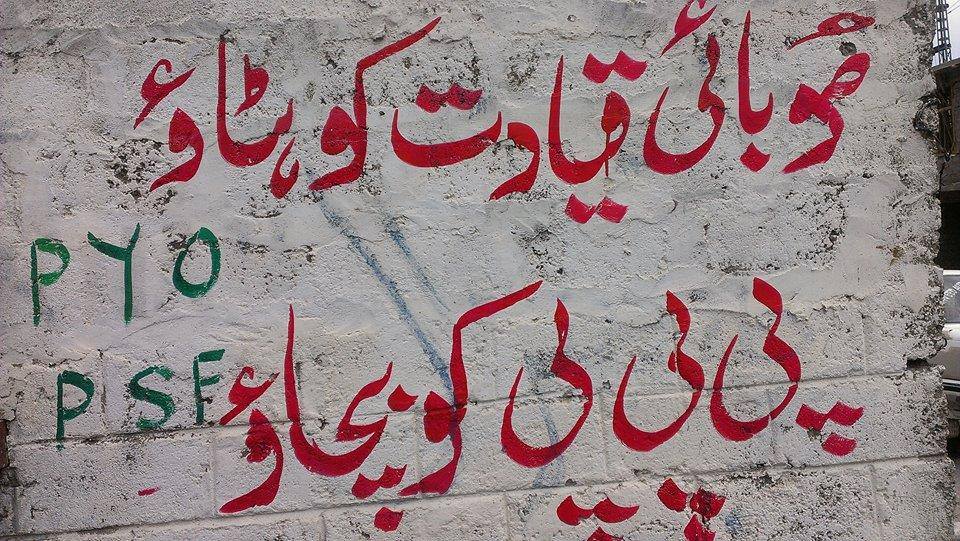 صوبائی قیادت کو ہٹاؤ
PYO
پی پی پی کو بچاؤ
PSF